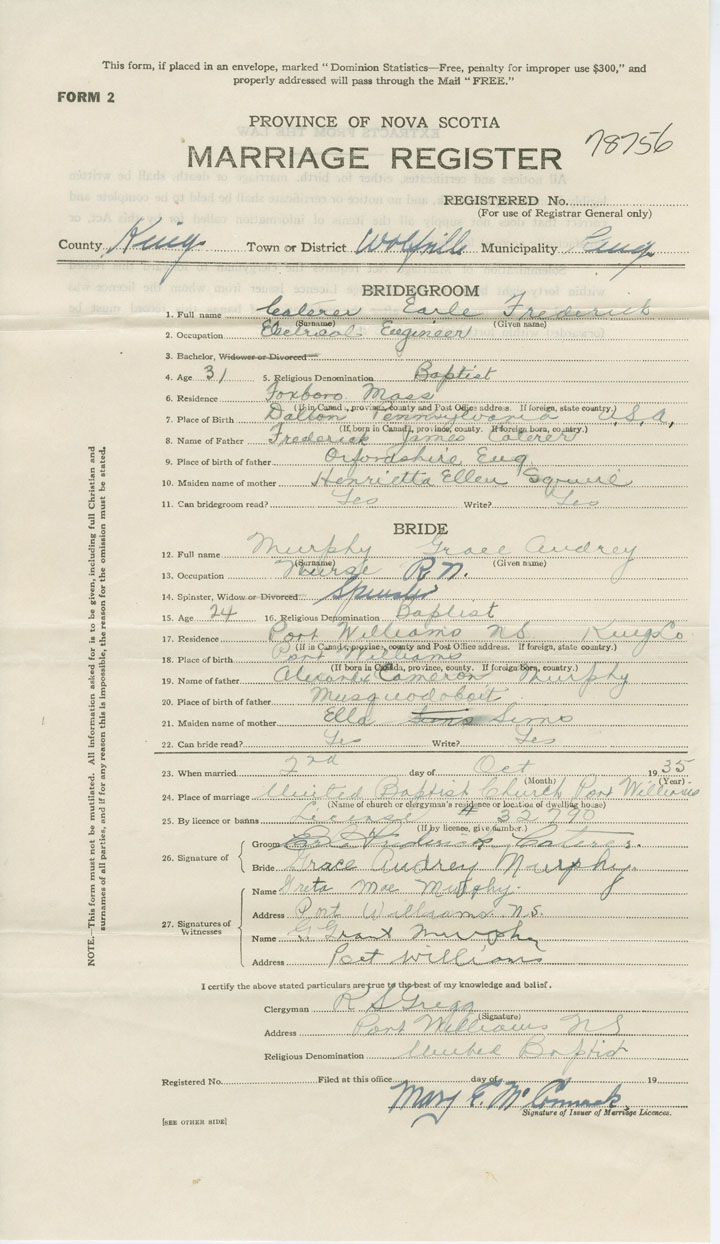 This form, if placed in an envelope, marked "Dominion Statistics—Free, penalty for improper use $300," and
properly addressed will pass through the Mail "FREE."
FORM 2
PROVINCE OF NOVA SCOTIA
MARRIAGE REGISTER 78756
REGISTERED No.
(For use of Registrar General only)
County Kings Town or District Wolfville Municipality Kings
BRIDEGROOM
1. Full name Caterer Earle Frederick
(Surname) (Given name)
2. Occupation Electrical Engineer
3. Bachelor, Widower or Divorced
4. Age 31 5. Religious Denomination Baptist
6. Residence Foxboro Mass
(If in Canada, province, county and Post Office address. If foreign, state country.)
7. Place of Birth Dalton Pennsylvania U.S.A.
(If born in Canada, province, county. If foreign born, country.)
8. Name of Father Frederick James Caterer
9. Place of birth of father Oxfordshire, Eng
10. Maiden name of mother Henrietta Ellen Squire
11. Can bridegroom read? Yes Write? Yes
BRIDE
12. Full name Murphy Grace Audrey
(Surname) (Given name)
13. Occupation Nurse R.N.
14. Spinster, Widow or Divorced Spinster
15. Age 24 16. Religious Denomination Baptist
17. Residence Port Williams N.S. Kings Co
(If in Canada, province, county and Post Office address. If foreign, state country.)
18. Place of birth Port Williams
(If born in Canada, province, county. If foreign born, country.)
19. Name of father Alexander Cameron Murphy
20. Place of birth of father Musquodoboit
21. Maiden name of mother Ella Sims Sims
22. Can bride read? Yes Write? Yes
23. When married 2nd day of Oct 1935
(Month) (Year)
24. Place of marriage United Baptist Church Port Williams
(Name of church or clergyman's residence or location of dwelling house)
25. By licence or banns License # 32790
(If by licence, give number.)
26. Signature of
Groom Frederick Caterer.
Bride Grace Audrey Murphy.
27. Signatures of Witnesses
Name Greta Mae Murphy.
Address Port Williams N.S.
Name G. Grant Murphy
Address Port Williams
I certify the above stated particulars are true to the best of my knowledge and belief.
Clergyman R S Gregg
(Signature)
Address Port Williams NS
Religious Denomination United Baptist
Registered No. Filed at this office day of 19
Mary E. McCormack
Signature of Issuer of Marriage Licences.
[SEE OTHER SIDE]
NOTE.—This form must not be mutilated. All information asked for is to be given, including full Christian and
surnames of all parties, and if for any reason this is impossible, the reason for the omission must be stated.